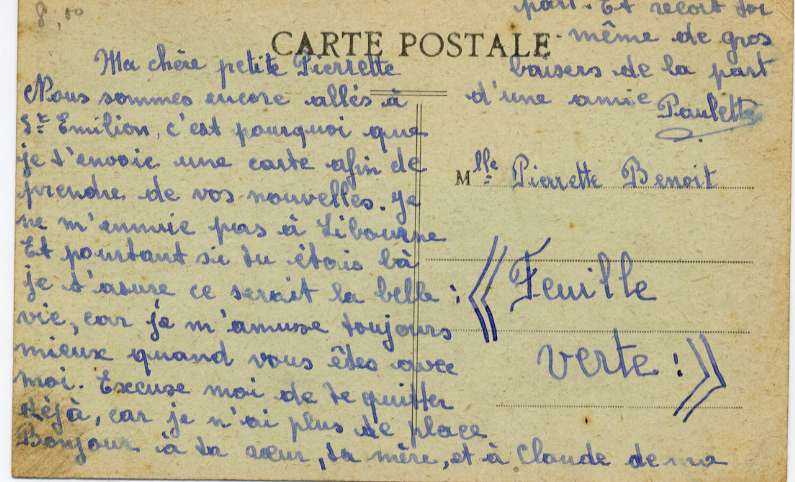 8,00
CARTE POSTALE
Ma chère petite Pierrette
Nous sommes encore allés à
St Emilion, c'est pourquoi que
je t'envoie une carte afin de
prendre de vos nouvelles. Je
ne m'ennuie pas à Libourne
Et pourtant si tu étais là
je t'asure ce serait la belle
vie, car je m'amuse toujours
mieux quand vous êtes avec
moi. Excuse moi de te quitter
déjà, car je n'ai plus de place
Bonjour à ta sœur, ta mère, et à Claude de ma
part. Et reçoit toi
même de gros
baisers de la part
d'une amie Paulette
Mlle Pierrette Benoit
: « Feuille
verte : »